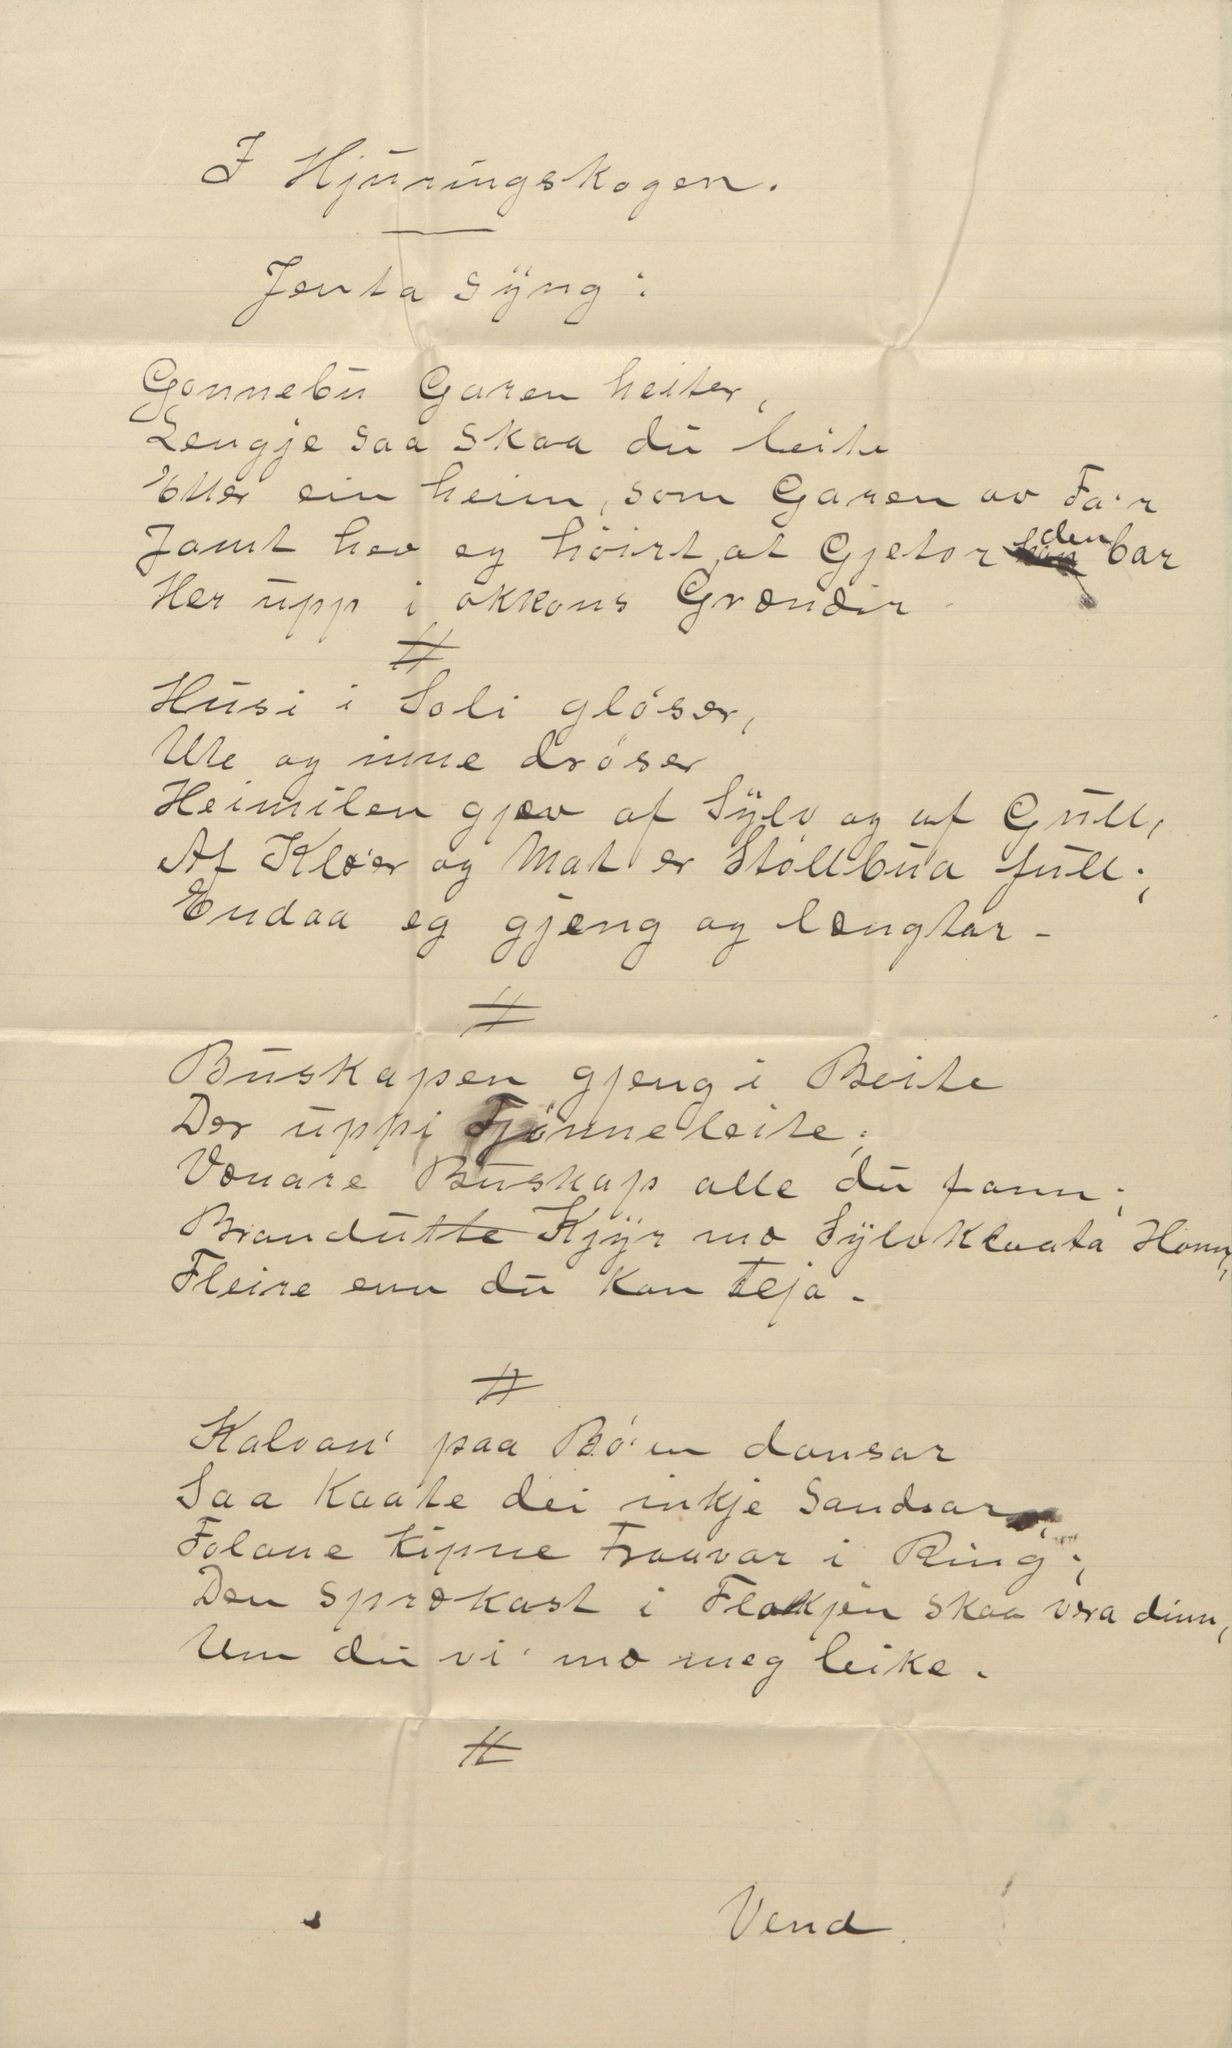 I Hjuringskogen.
Jenta syng:
Gonnebu Garen heiter,
Lengje saa skaa du leite
Etter ein heim, som Garen av Fa'r
Jamt hev eg höirt, at Gjetor den bar
Her upp i okkons Grændir.
#
Husi i Soli glöser,
Ute og inne dröser
Heimilen gjæv af Sylv og af Gull,
Af Klæ'er og Mat er Stöllbua full;
Endaa eg gjeng og længtar -
#
Buskapen gjeng i Beite
Der uppi Tjönneleite;
Vænare Buskap alle du fann;
Brandutte Kjyr mæ Sylvklaata Honn,
Fleire enn du kan teja.
#
Kalvan' paa Bö'en dansar
Saa kaate dei inkje Sandsar,
Folane kipne Traavar i Ring;
Den sprækast i Flokkjen skaa vera dinn,
Um du vi' mæ meg leike.
#
Vend.